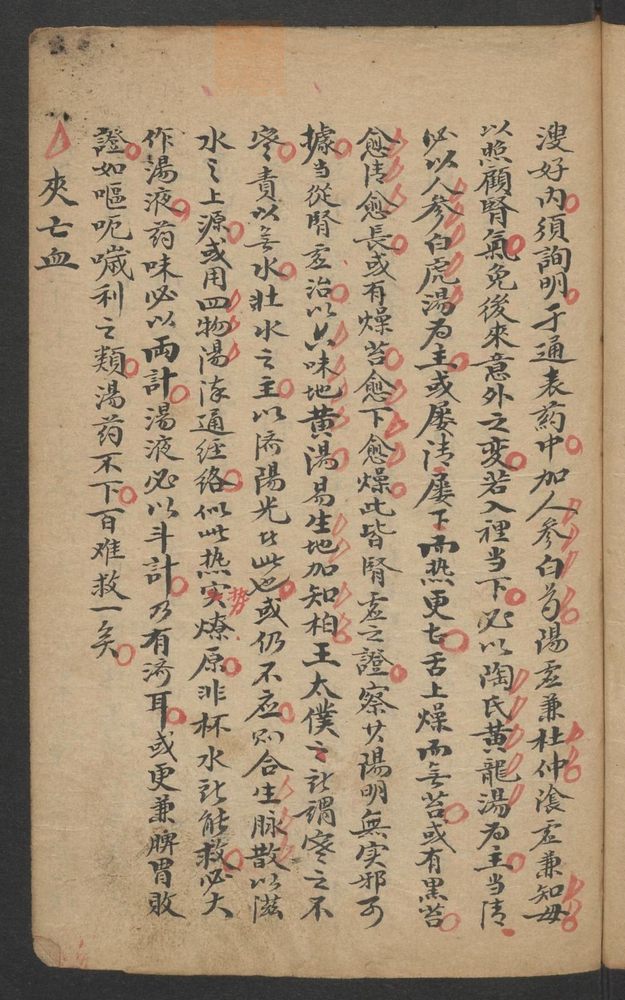 溲好内須詢明于通表药中加人參白芍陽虗兼杜仲滄虗兼知毋
以照顧腎氣免後來意外之变若入裡当下必以陶氏黄龍湯为主当清
必以人參白虎湯为主或屡清屡下而热更甚舌上燥而无苔或有黒苔
愈清愈長或有燥苔愈下愈燥此皆腎虗之證察其陽明無实邪可
據当從腎虗治以六味地黄湯易生地加知柏王太僕之所謂寒之不
寒責以无水壮水之主以济陽光者此也或仍不应则合生脉散以滋
水之上源或用四物湯流通经络似此热势燎原非杯水所能救必大
作湯液药味必以兩計湯液必以斗計乃有济耳或更兼脾胃敗
證如嘔呃噦利之類湯药不下百难救一矣
夾亡血